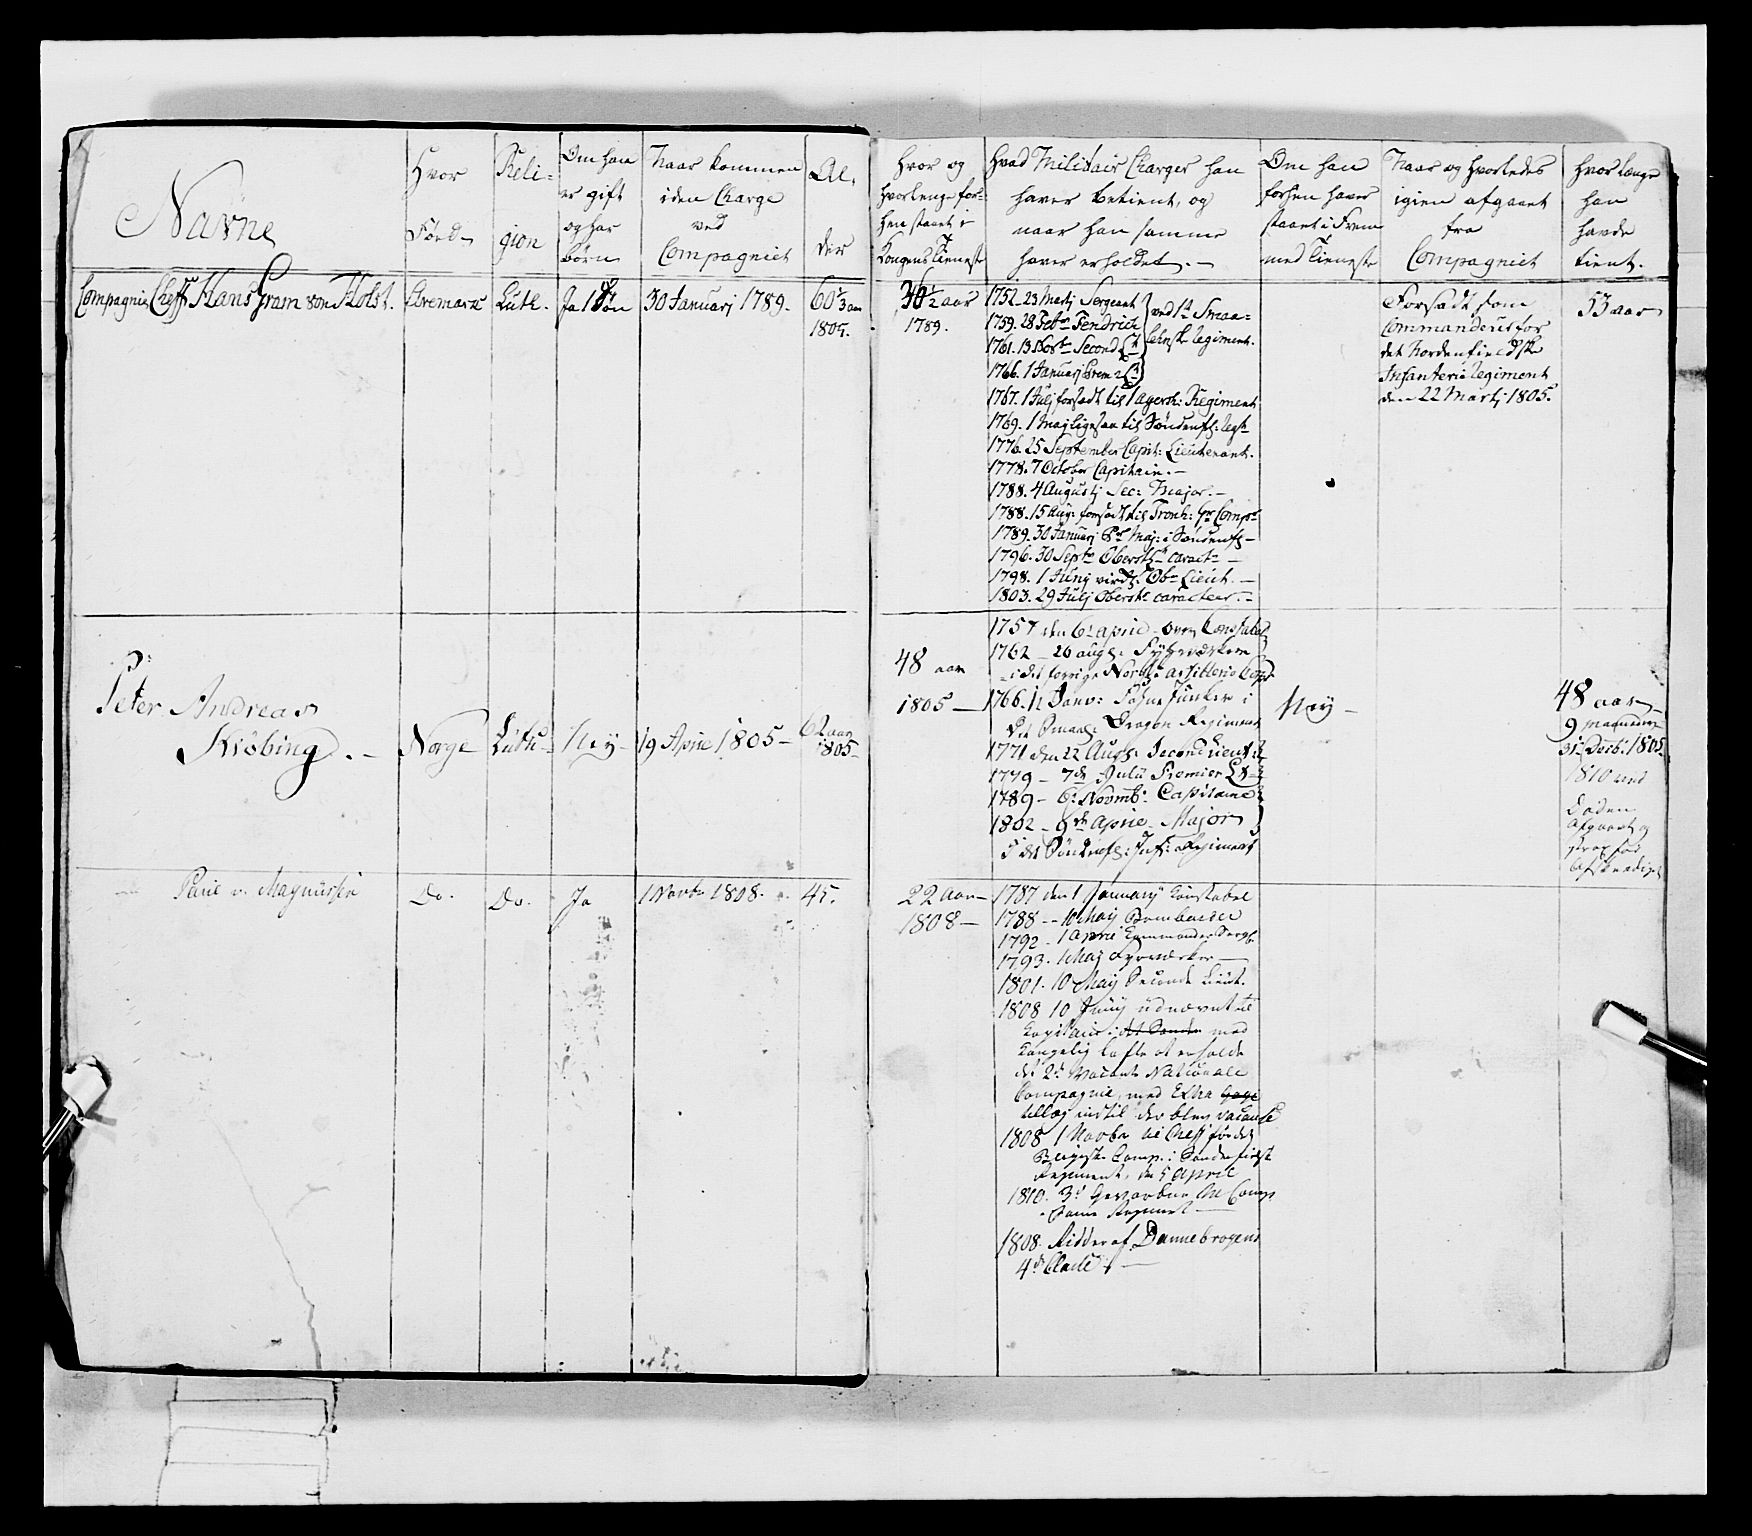 Navne
Hvor
Föed
Reli=
gion
Om han
er gift
og har
börn
Naar kommen
i den Charge
ved
Compagniet
Al,
der
Hvor og
hvorlenge for=
hen staaet i
Kongens Tieneste
Hvad Militair Charger han
haver betient, og
naar han samme
haver erholdet. -
Om han
forhen haver
staaet i Frem=
med Tieneste
Naar og hvorledes
igien afgaaet
fra
Compagniet
hvor længe
han
havde
tient.
Compagnie Cheff Hans Gram von Holst.
Aremark
Luth.
Ja 1 Sön
30 Januarj 1789.
60 1/3 aar
1805.
36 1/2 aar
1789.
1752. 23 Martj Sergeant
1759. 28 Febr. Fendrich
1761. 13 Second Lt
1766. 1 Januarj Prem. Lt
ved 1ste Smaa=
lehnske Regiment.
1767. 1 Julj forsadt til 1 Agersh: Regiment
1769. 1 Maj ligesaa til Söndenf: Regt
1776. 25 September Capit: Lieutenant.
1778. 7 October Capitain. -
1788. 4 Augustj Sec: Major. -
1788. 15 Aug: forsadt til Tronh: Comp
1789. 30 Januarj Pr Maj: i Söndenf -
1796. 30 Sept Oberstlt caract -
1798. 1 Junj virkl: Ob Lieut. -
1803. 29 Julj Oberste caracteer. -
Forsadt som
Commandeur for
det Nordenfieldske
Infanterie Regiment
den 22 Martj 1805.
53 aar
Peter Andreas
Kröbing. -
Norge
Luth -
Ney -
19 April 1805 -
62 aar
1805 -
48 aar
1805 -
1757 den 6t april Constabel
1762 - 26 aug: Fyrværker
i det forrige Norske Artillerie Corps
1766. 11 Janv: Fahne Junker i
Det Smaal: Dragon Regiment
1771 den 22 Aug: Second Lieut:
1779 - 7de July Premier Lt
1789 - 6t Novmb: Capitaine
1802 - 9de April Major
i det Söndenf: Inf: Regiment
Ney -
48 aar -
9 maaneder
31 Decb: 1805
1810 ved
Döden
Afgaaet og
for
Afskediget
Paul v. Magnussen
Do.
Do.
Ja
1 Novb 1808.
45.
22 Aar -
1808 -
1787 den 1 January Konstabel
1788 - 10 May Bombardeer
1792 - 1 April Kommandeer Serg
1793. 1 Maj Fyrværker -
1801. 10 May Seconde Lieut.
1808 10 Junij udnævnt til
Kapitain i med
Kongelig Löfte at erholde
det 2de vacante Nationale
Compagnie, med Extra Gage
tillæg indtil der blev vacance
1808 1 Novbr til Cheff for det
Comp. i Söndenfields
Regiment, den 5 April
1810. 3d Gevorbne Comp
Samme Regiment -
1808. Ridder af Dannebrogens
4de Classe -